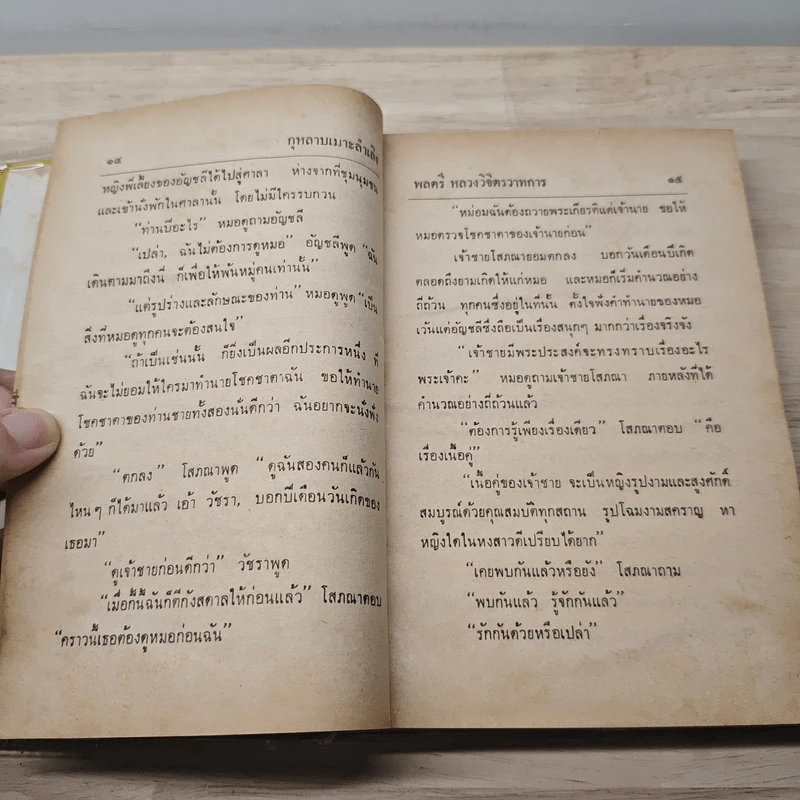 ๑๔ กุหลาบเมาะลำเลิง
หญิงพี่เลี้ยงของอัญชลีได้ไปสู่ศาลา ห่างจากที่ชุมนุมชน
และเข้านั่งพักในศาลานั้น โดยไม่มีใครรบกวน
“ท่านปีอะไร” หมอดูถามอัญชลี
“เปล่า, ฉันไม่ต้องการดูหมอ” อัญชลีพูด “ฉัน
เดินตามมาถึงนี่ ก็เพื่อให้พ้นหมู่คนเท่านั้น”
“แต่รูปร่างและลักษณะของท่าน” หมอดูพูด “เป็น
สิ่งที่หมอดูทุกคนจะต้องสนใจ”
“ถ้าเป็นเช่นนั้น ก็ยิ่งเป็นผลอีกประการหนึ่ง ที่
ฉันจะไม่ยอมให้ใครมาทำนายโชคชาตาฉัน ขอให้ทำนาย
โชคชาตาของท่านชายทั้งสองนั่นดีกว่า ฉันอยากจะนั่งฟัง
ด้วย”
“ตกลง” โสภณาพูด “ดูฉันสองคนก็แล้วกัน
ไหนๆ ก็ได้มาแล้ว เอ้า วัชรา, บอกปีเดือนวันเกิดของ
เธอมา”
“ดูเจ้าชายก่อนดีกว่า” วัชราพูด
“เมื่อกี้นี้ฉันก็ตีกังสดาลให้ก่อนแล้ว” โสภณาตอบ
“คราวนี้เธอต้องดูหมอก่อนฉัน”
พลตรี หลวงวิจิตรวาทการ ๑๕
“หม่อมฉันต้องถวายพระเกียรติแด่เจ้านาย ขอให้
หมอตรวจโชคชาตาของเจ้านายก่อน”
เจ้าชายโสภณายอมตกลง บอกวันเดือนปีเกิด
ตลอดถึงยามเกิดให้แก่หมอ และหมอก็เริ่มคำนวณอย่าง
ถี่ถ้วน ทุกคนซึ่งอยู่ในที่นั้น ตั้งใจฟังคำทำนายของหมอ
เว้นแต่อัญชลีซึ่งถือเป็นเรื่องสนุกๆ มากกว่าเรื่องจริงจัง
“เจ้าชายมีพระประสงค์จะทรงทราบเรื่องอะไร
พระเจ้าคะ” หมอดูถามเจ้าชายโสภณา ภายหลังที่ได้
คำนวณอย่างถี่ถ้วนแล้ว
“ต้องการรู้เพียงเรื่องเดียว” โสภณาตอบ “คือ
เรื่องเนื้อคู่”
“เนื้อคู่ของเจ้าชาย จะเป็นหญิงรูปงามและสูงศักดิ์
สมบูรณ์ด้วยคุณสมบัติทุกสถาน รูปโฉมงามสคราญ หา
หญิงใดในหงสาวดีเปรียบได้ยาก”
“เคยพบกันแล้วหรือยัง” โสภณาถาม
“พบกันแล้ว รู้จักกันแล้ว”
“รักกันด้วยหรือเปล่า”